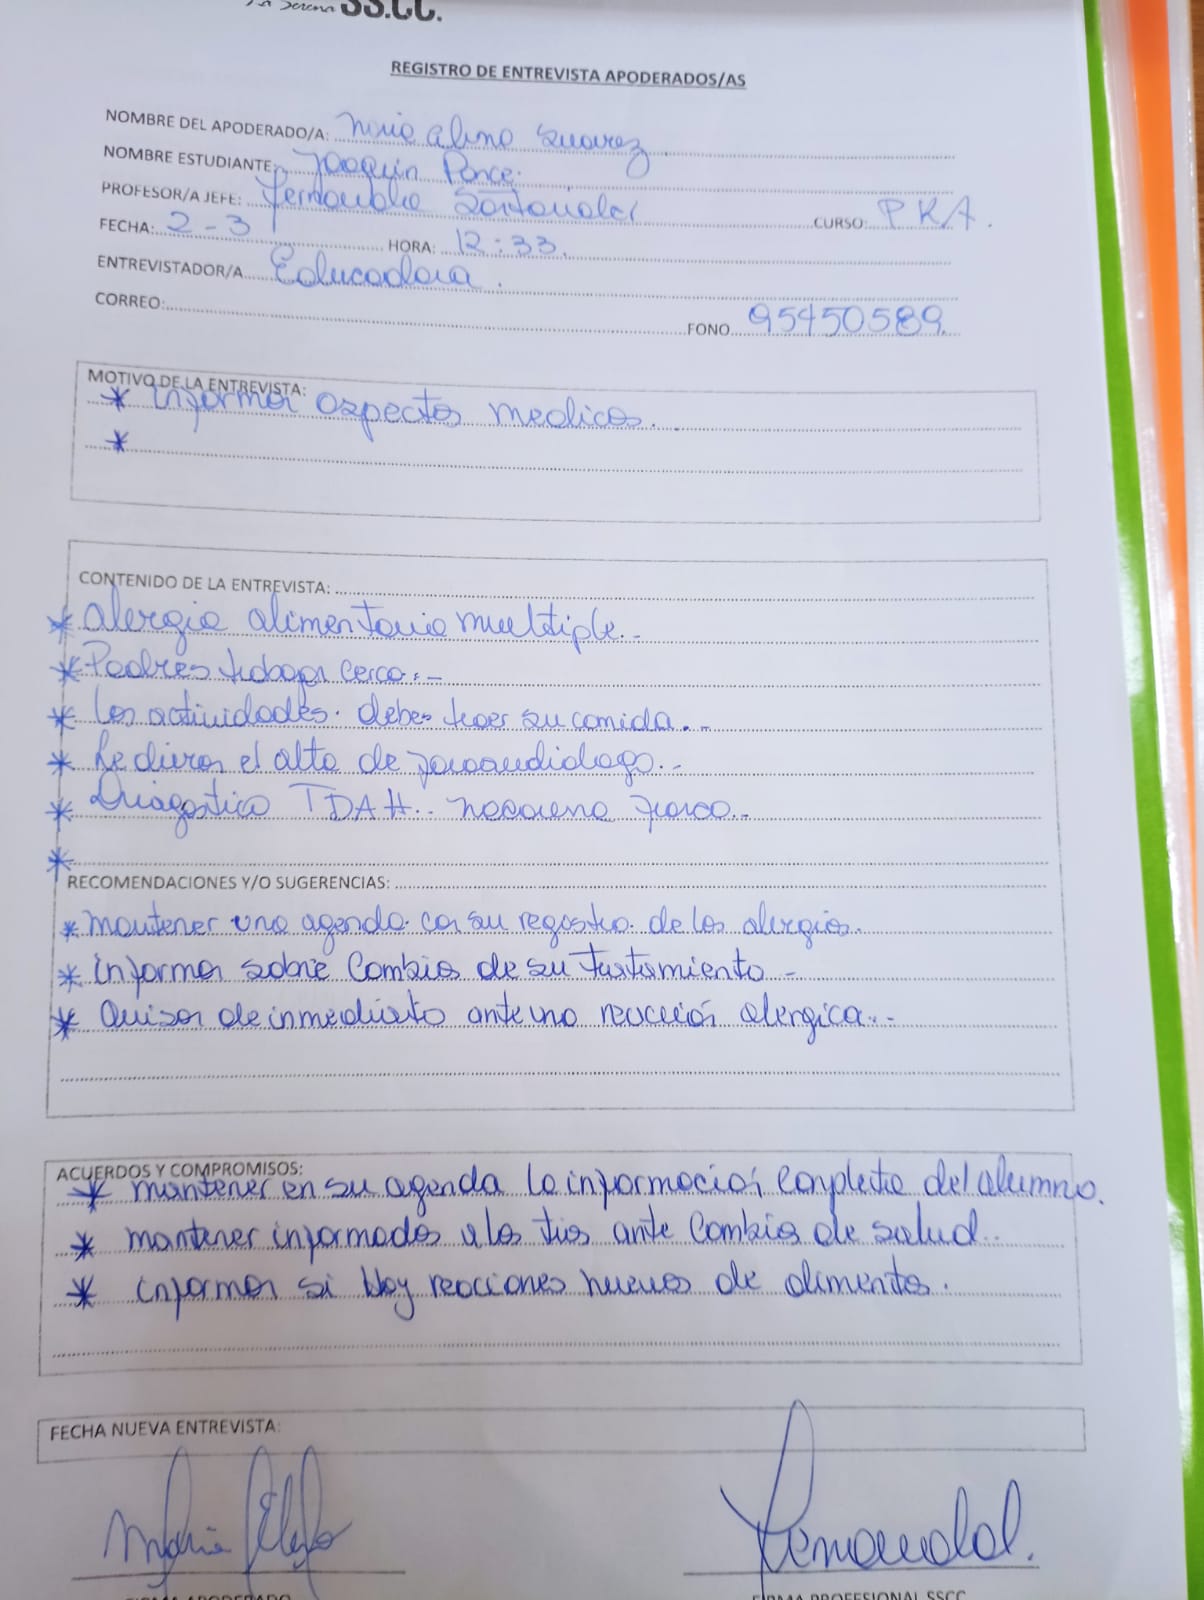 La Serena SS.CC.
REGISTRO DE ENTREVISTA APODERADOS/AS
NOMBRE DEL APODERADO/A: Suarez
NOMBRE ESTUDIANTE: Joaquin Ponce.
PROFESOR/A JEFE: CURSO: PKA.
FECHA: 2-3 HORA: 12:33.
ENTREVISTADOR/A Educadora.
CORREO: FONO 95450589.
MOTIVO DE LA ENTREVISTA:
* Informar aspectos medicos.
*
CONTENIDO DE LA ENTREVISTA:
* alergia alimentaria multiple.-
* Padres trabajan cerca.-
* Los actividades. deben traer su comida.-
* Le dieron el alta de fonoaudiologo.-
* Diagostico TDAH..
*
RECOMENDACIONES Y/O SUGERENCIAS:
* mantener una agenda con su registro de las alergias.
* informar sobre Cambios de su tratamiento -
* Avisar de inmediato ante una reacción alergica.-
ACUERDOS Y COMPROMISOS:
* mantener en su agenda la información completa del alumno.
* mantener informados a las tias ante Cambios de salud..
* informar si hay reacciones nuevas de alimentos.
FECHA NUEVA ENTREVISTA:
Maria
FIRMA APODERADO
FIRMA PROFESIONAL SSCC